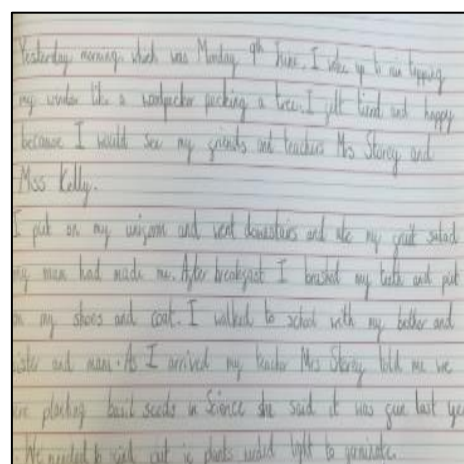 Yesterday morning, which was Monday 9th June, I woke up to rain tapping
my window like a woodpecker pecking a tree. I felt tired and happy
because I would see my friends and teachers Mrs Storey and
Miss Kelly.
I put on my uniform and went downstairs and ate my fruit salad
my mum had made me. After breakfast I brushed my teeth and put
on my shoes and coat. I walked to school with my and
sister and mam. As I arrived my teacher Mrs Storey told me we
were planting basil seeds in Science she said it was fun last year
. We needed to find out if plants needed light to germinate.